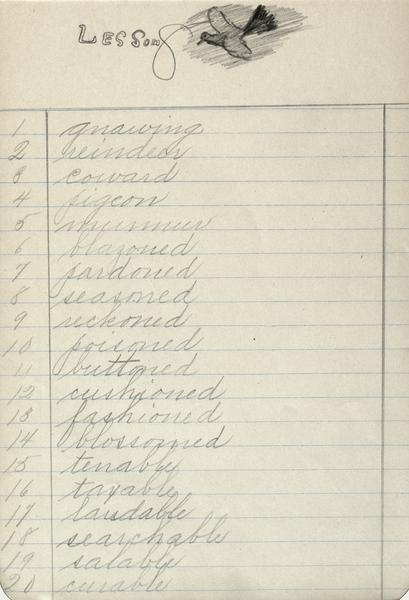 Lessons
1 gnawing
2 reindeer
3 coward
4 pigeon
5 murmur
6 blazoned
7 pardoned
8 seasoned
9 reckoned
10 poisoned
11 buttoned
12 cushioned
13 fashioned
14 blossomed
15 tenable
16 taxable
17 laudable
18 searchable
19 salable
20 curable